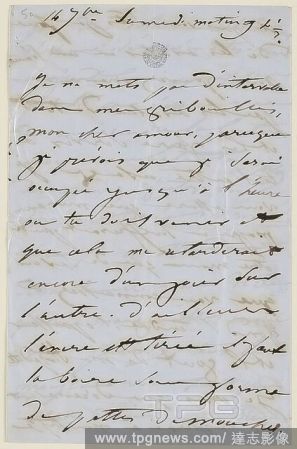 16 7bre Samedi matin 9 h
Je ne mets pas d'intervalle
dans mes gribouillis,
mon cher amour, parce que
je prévois que je serai
occupée jusqu'à l'heure
où tu dois venir et
que cela me retarderait
encore d'un jour sur
l'autre. d'ailleurs
l'encre est tirée il faut
la boire sous forme
de pattes de mouches
TPG
www.tpgnews.com/達志影像